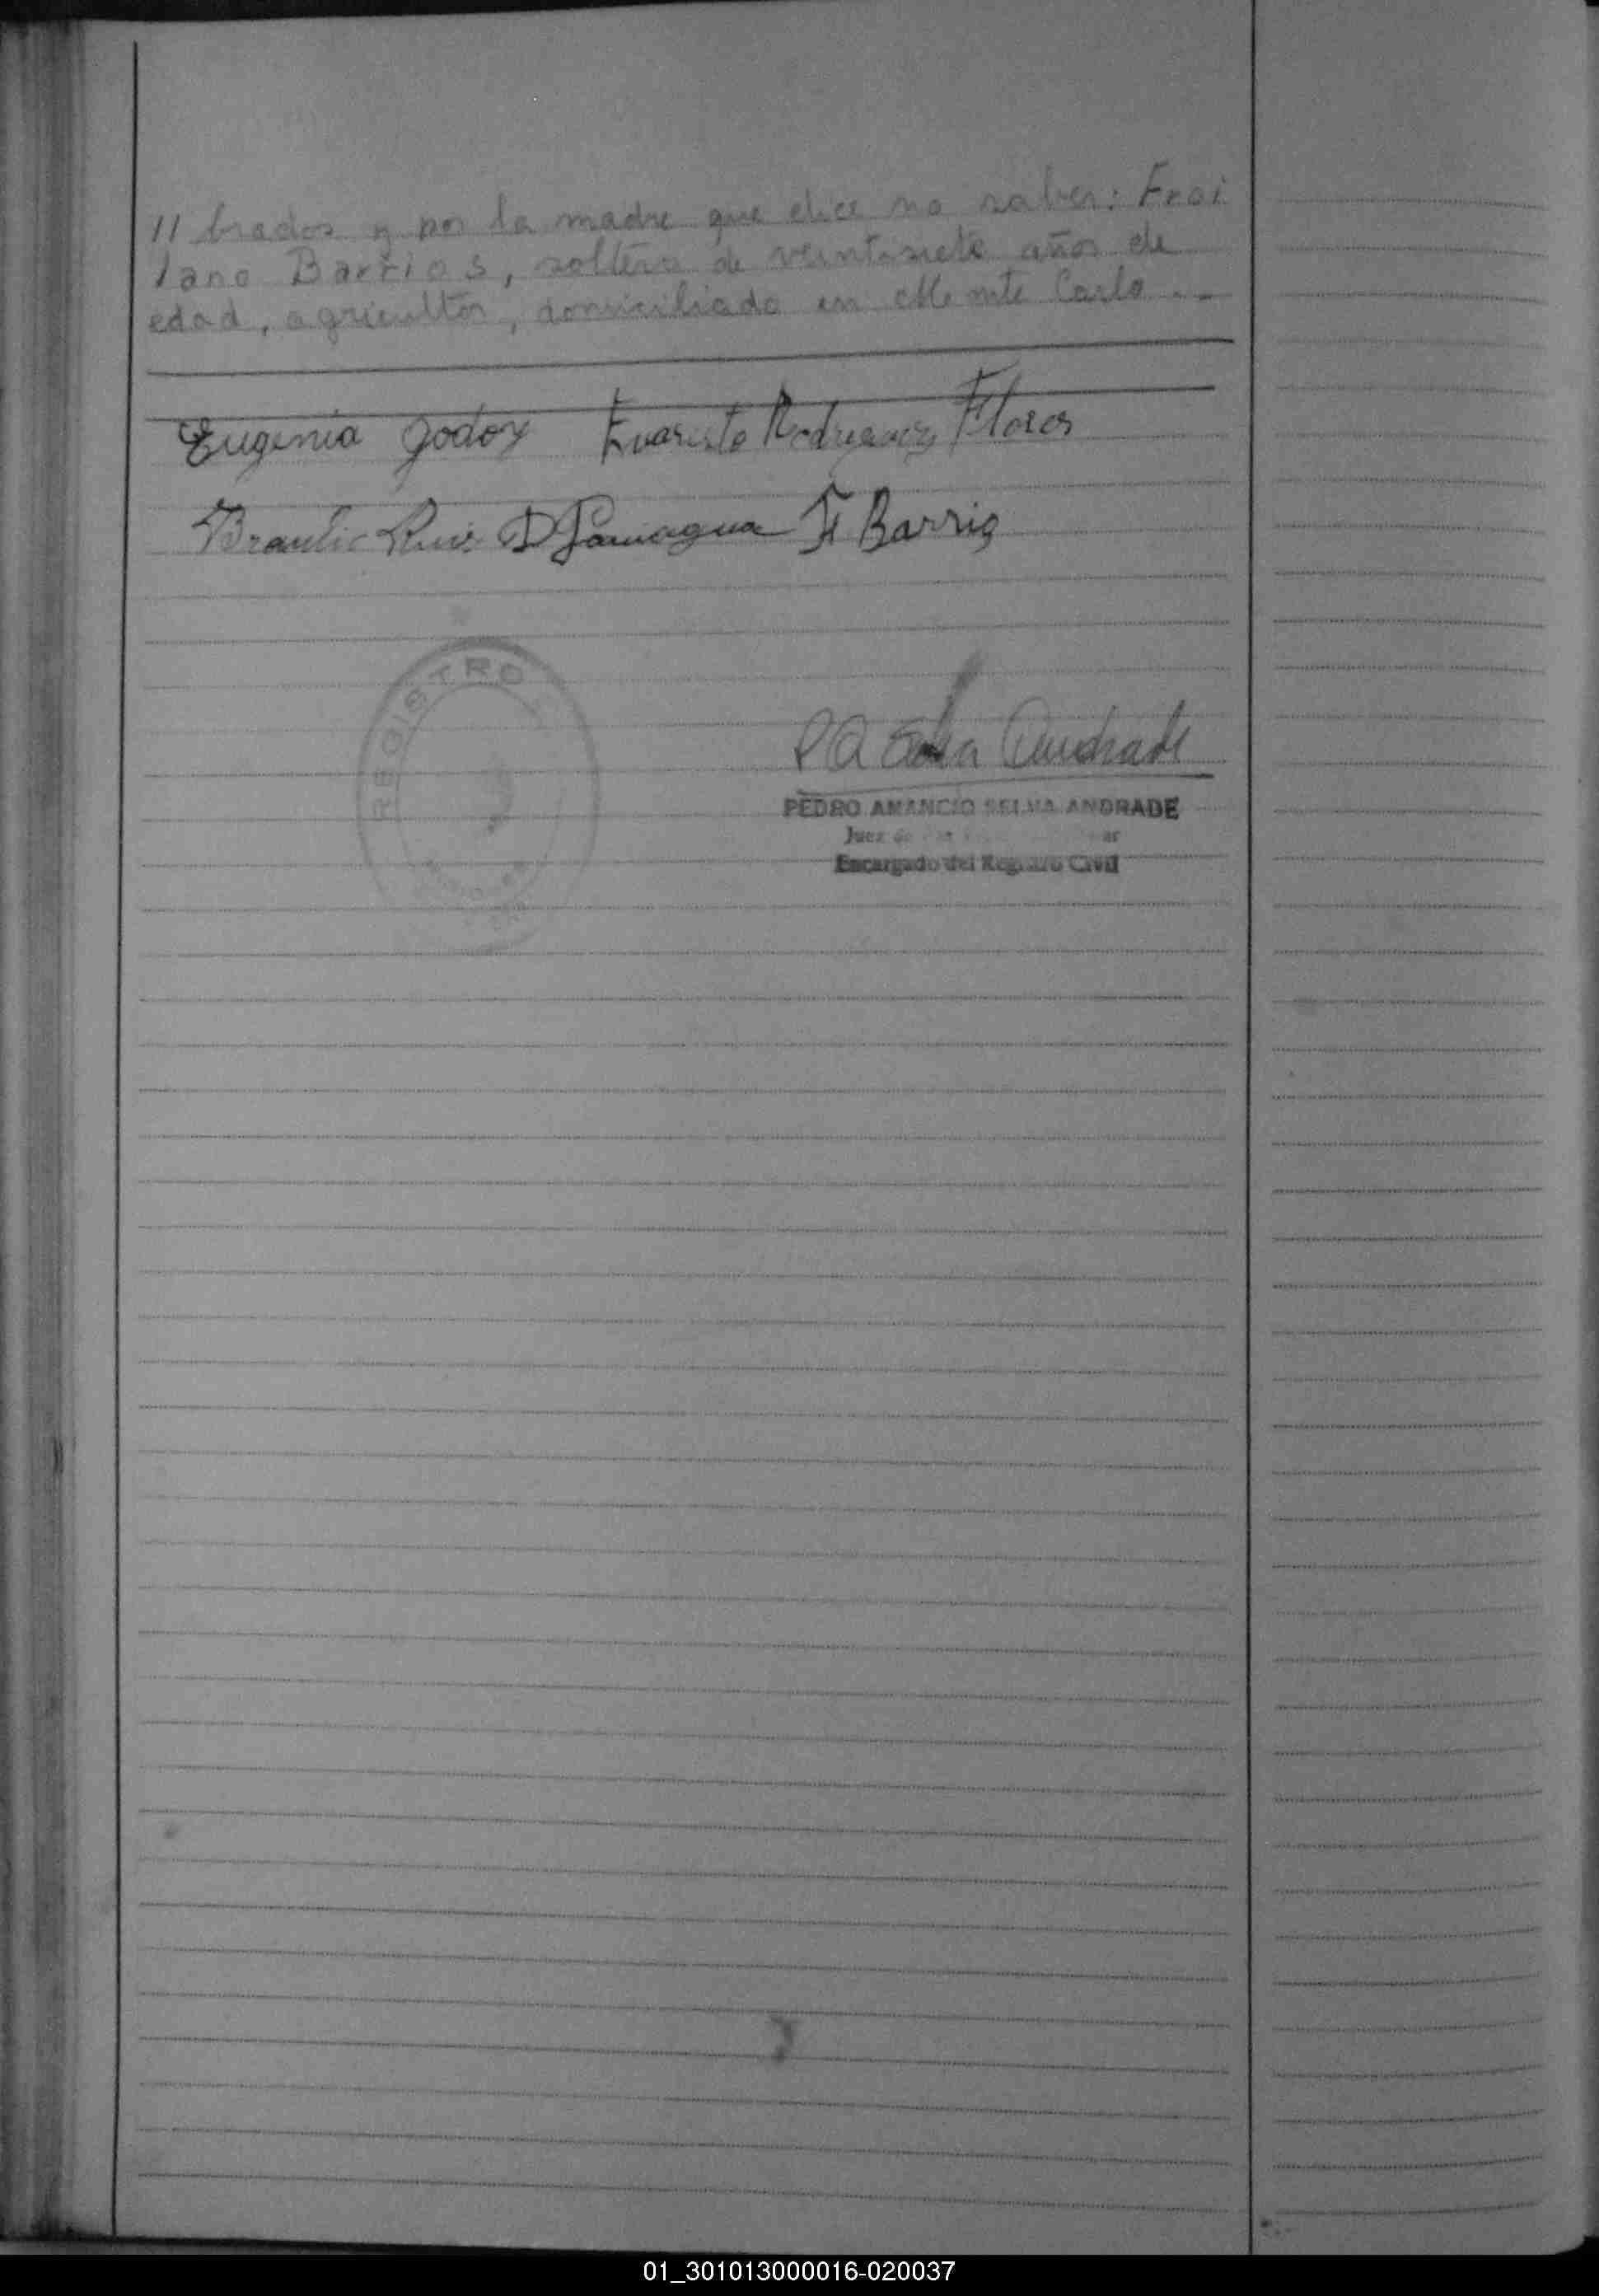 // brados y por la madre que dice no saber: Froi
lano Barrios, soltero de veintisiete años de
edad, agricultor, domiciliado en Monte Carlo . –
Eugenia Godoy Evaristo Rodriguez Flores
Braulio Ruiz D Paniagua F Barrio
REGISTRO
P A Selva Andrade
PEDRO AMANCIO SELVA ANDRADE
Juez de
Encargado del Registro Civil
01_301013000016-020037